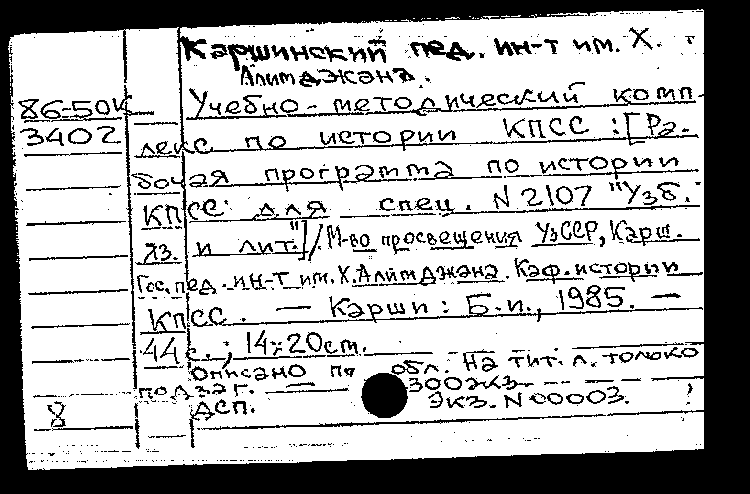 Каршинский пед. ин-т им. Х.
Алимджана.
86-50К
3402
Учебно-методический комп-
лекс по истории КПСС : [Ра-
бочая программа по истории
КПСС для спец. N 2107 "Узб.
яз. и лит."] / М-во просвещения УзССР, Карш.
Гос. пед. ин-т им. Х. Алимджана. Каф. истории
КПСС. — Карши : Б.и., 1985. —
44 с. ; 14×20 см.
Описано по обл. На тит. л. только
под заг. — 300 экз.
ДСП. Экз. N 00003.
8